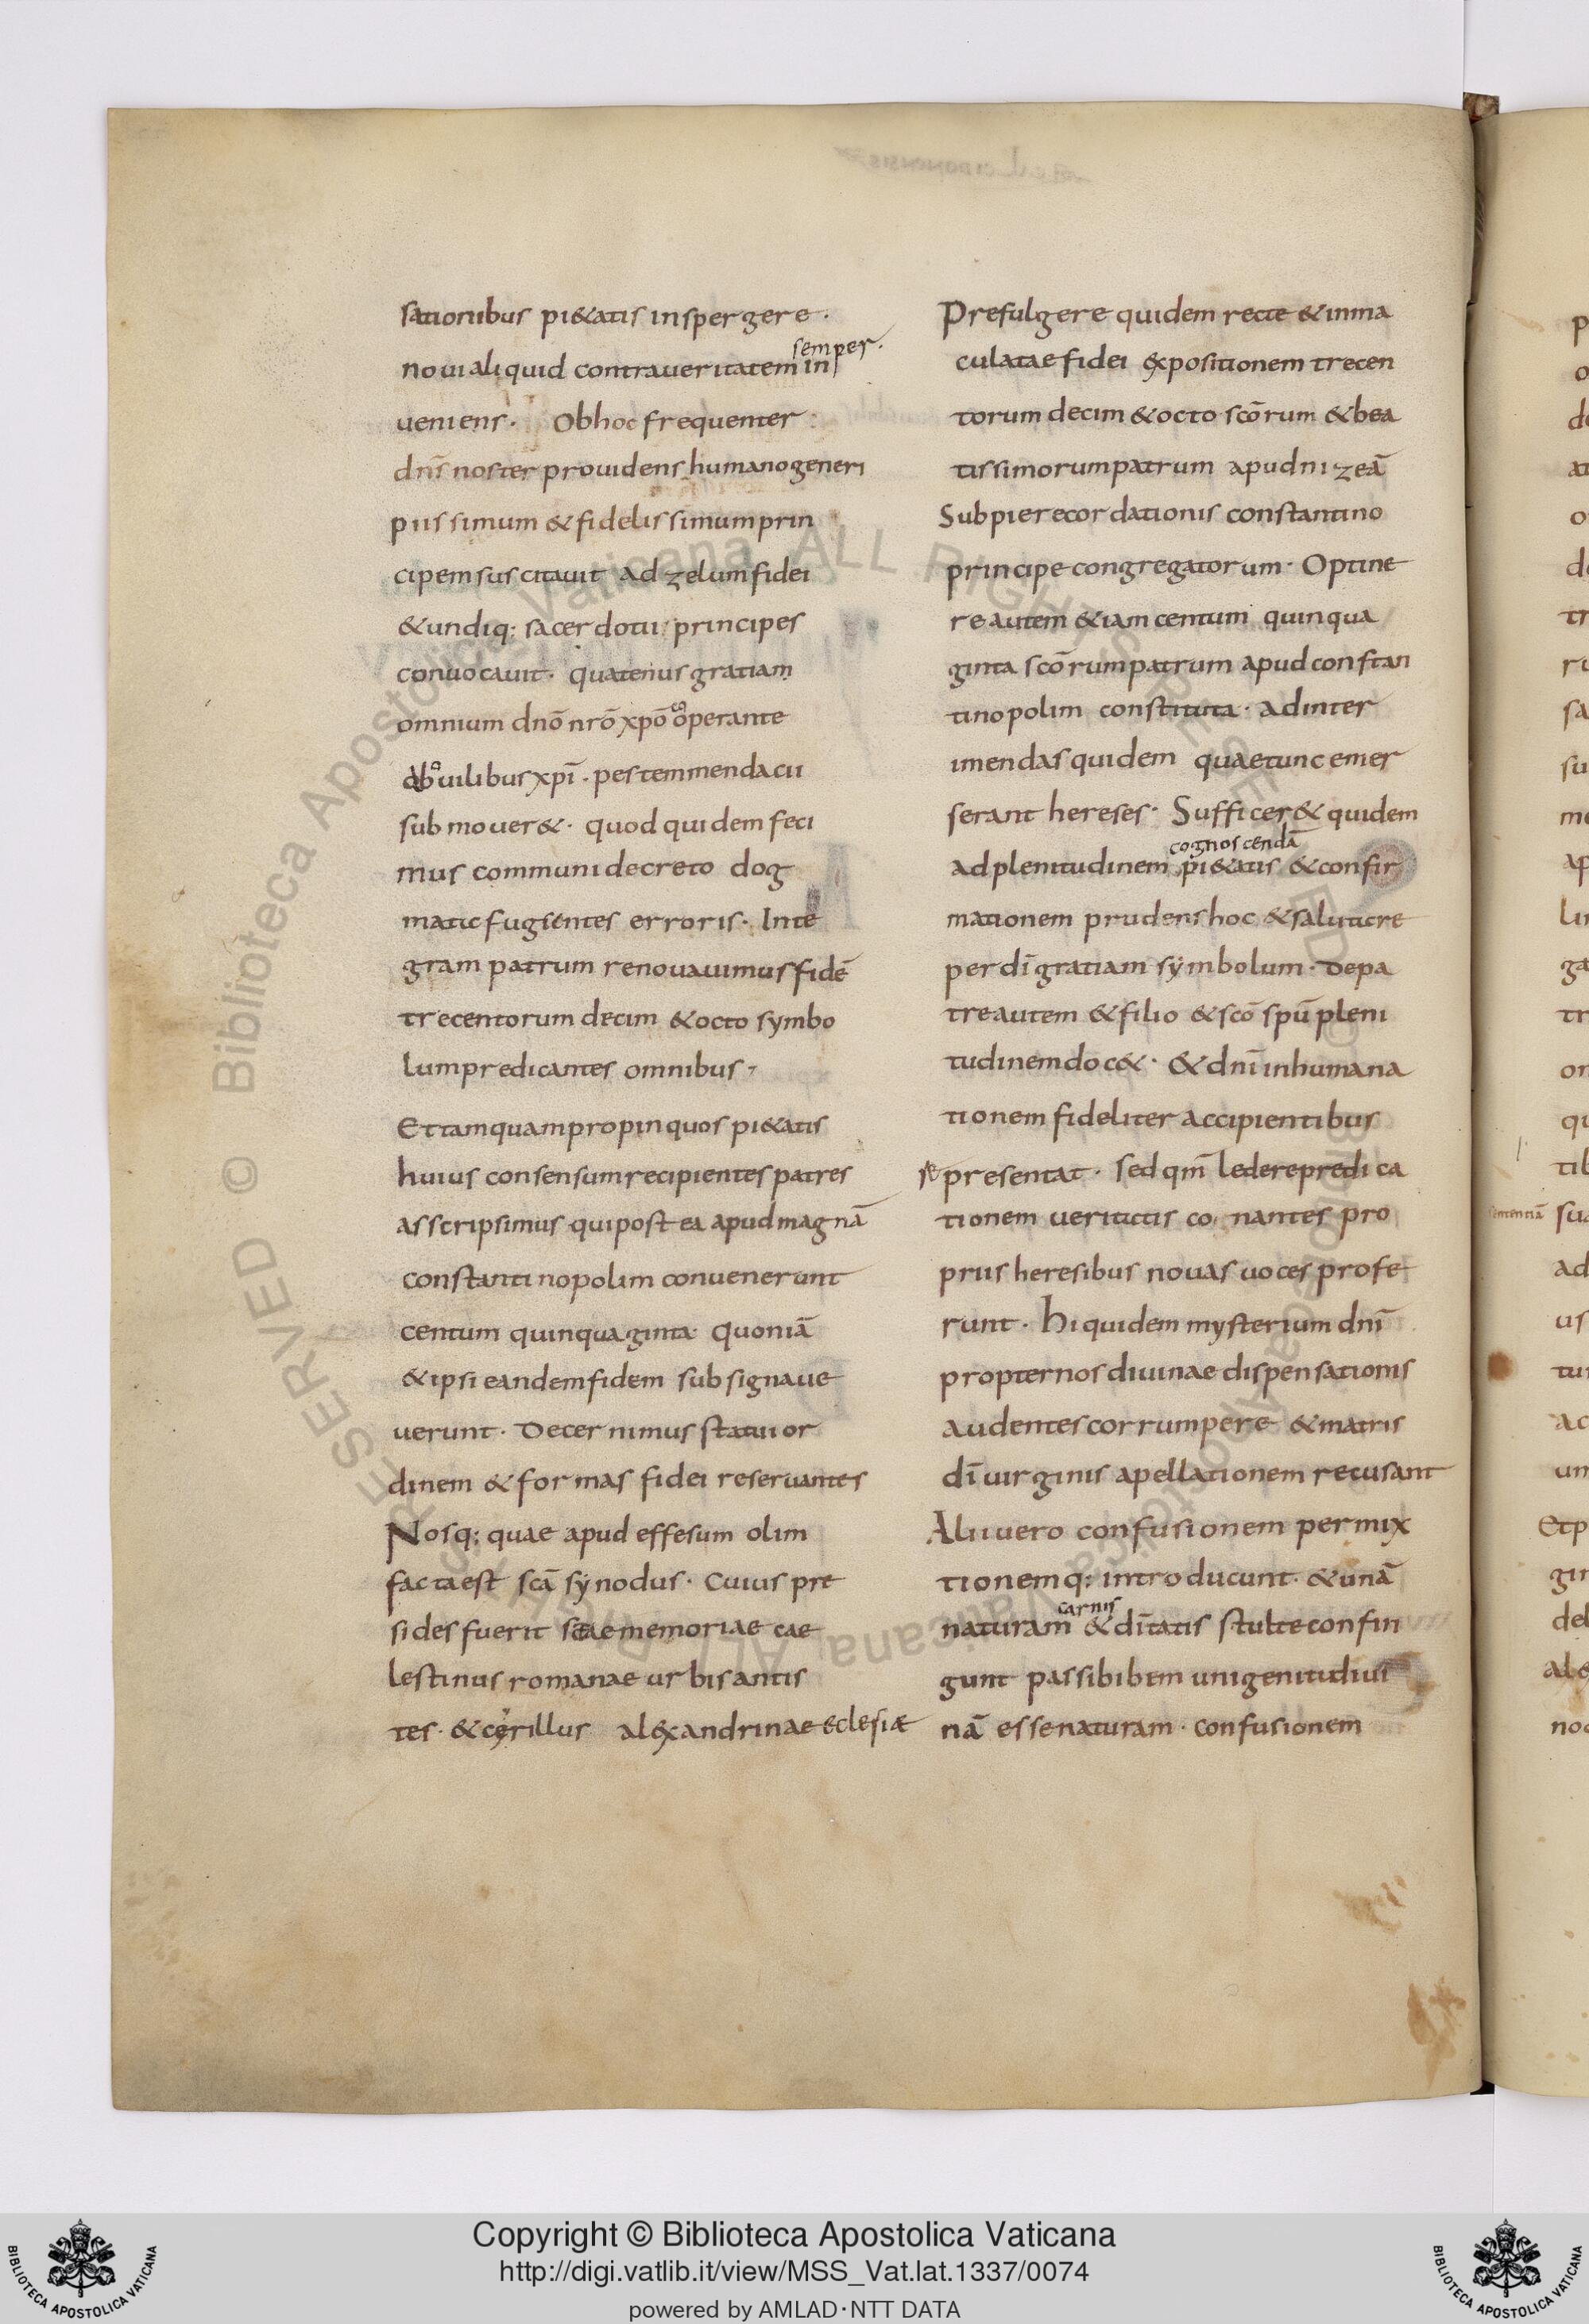 sationibus pi&atis inspergere·
semper·
noui aliquid contraueritatem in
ueniens· Obhoc frequenter
dns̄ noster prouidens humanogeneri
piissimum & fidelissimum prin
cipem suscitauit ad zelum fidei
& undiq; sacerdotii principes
conuocauit· quatenus gratiam
omnium dnō nrō xpō operante
ab ouilibus xp̄i· pestem mendacii
submouer&· quod quidem feci
mus communi decreto dog
matic fugientes erroris· Inte
gram patrum renouauimus fidē
trecentorum decim & octo symbo
lum predicantes omnibus
Et tamquam propinquos pi&atis
huius consensum recipientes patres
asscripsimus qui post ea apud magnā
constantinopolim conuenerunt
centum quinquaginta· Quoniā
& ipsi eandem fidem subsignaue
uerunt· Decernimus statui or
dinem & formas fidei reseruantes
Nosq; quae apud effesum olim
facta est scā synodus· Cuius pre
sides fuerit scae memoriae cae
lestinus romanae urbis antis
tes· & cyrillus alexandrinae eclesiæ
Prefulgere quidem recte & inma
culatae fidei expositionem trecen
torum decim & octo scōrum & bea
tissimorum patrum apud nizeā
Sub pie recordationis constantino
principe congregatorum· Optine
re autem &iam centum quinqua
ginta scōrum patrum apud constan
tinopolim constituta· ad inter
imendas quidem quae tunc emer
serant hereses· Suffcer& quidem
cognoscendā
ad plenitudinem pi&atis & confir
mationem prudens hoc & salutare
per dī gratiam symbolum· De pa
tre autem & filio & scō spū pleni
tudinem doc&· & dnī inhumana
tionem fideliter accipientibus
se presentat· Sed qm̄ ledere predica
tionem ueritatis conantes pro
priis heresibus nouas uoces profe
runt· Hi quidem mysterium dnī
propter nos diuinae dispensationis
audentes corrumpere & matris
dī uirginis apellationem recusant
Alii uero confusionem permix
tionemq; introducunt· & unā
carnis
naturam & dītatis stulte confin
gunt passibilem unigeniti diui
nā esse naturam· confusionem
Copyright © Biblioteca Apostolica Vaticana
http://digi.vatlib.it/view/MSS_Vat.lat.1337/0074
powered by AMLAD·NTT DATA